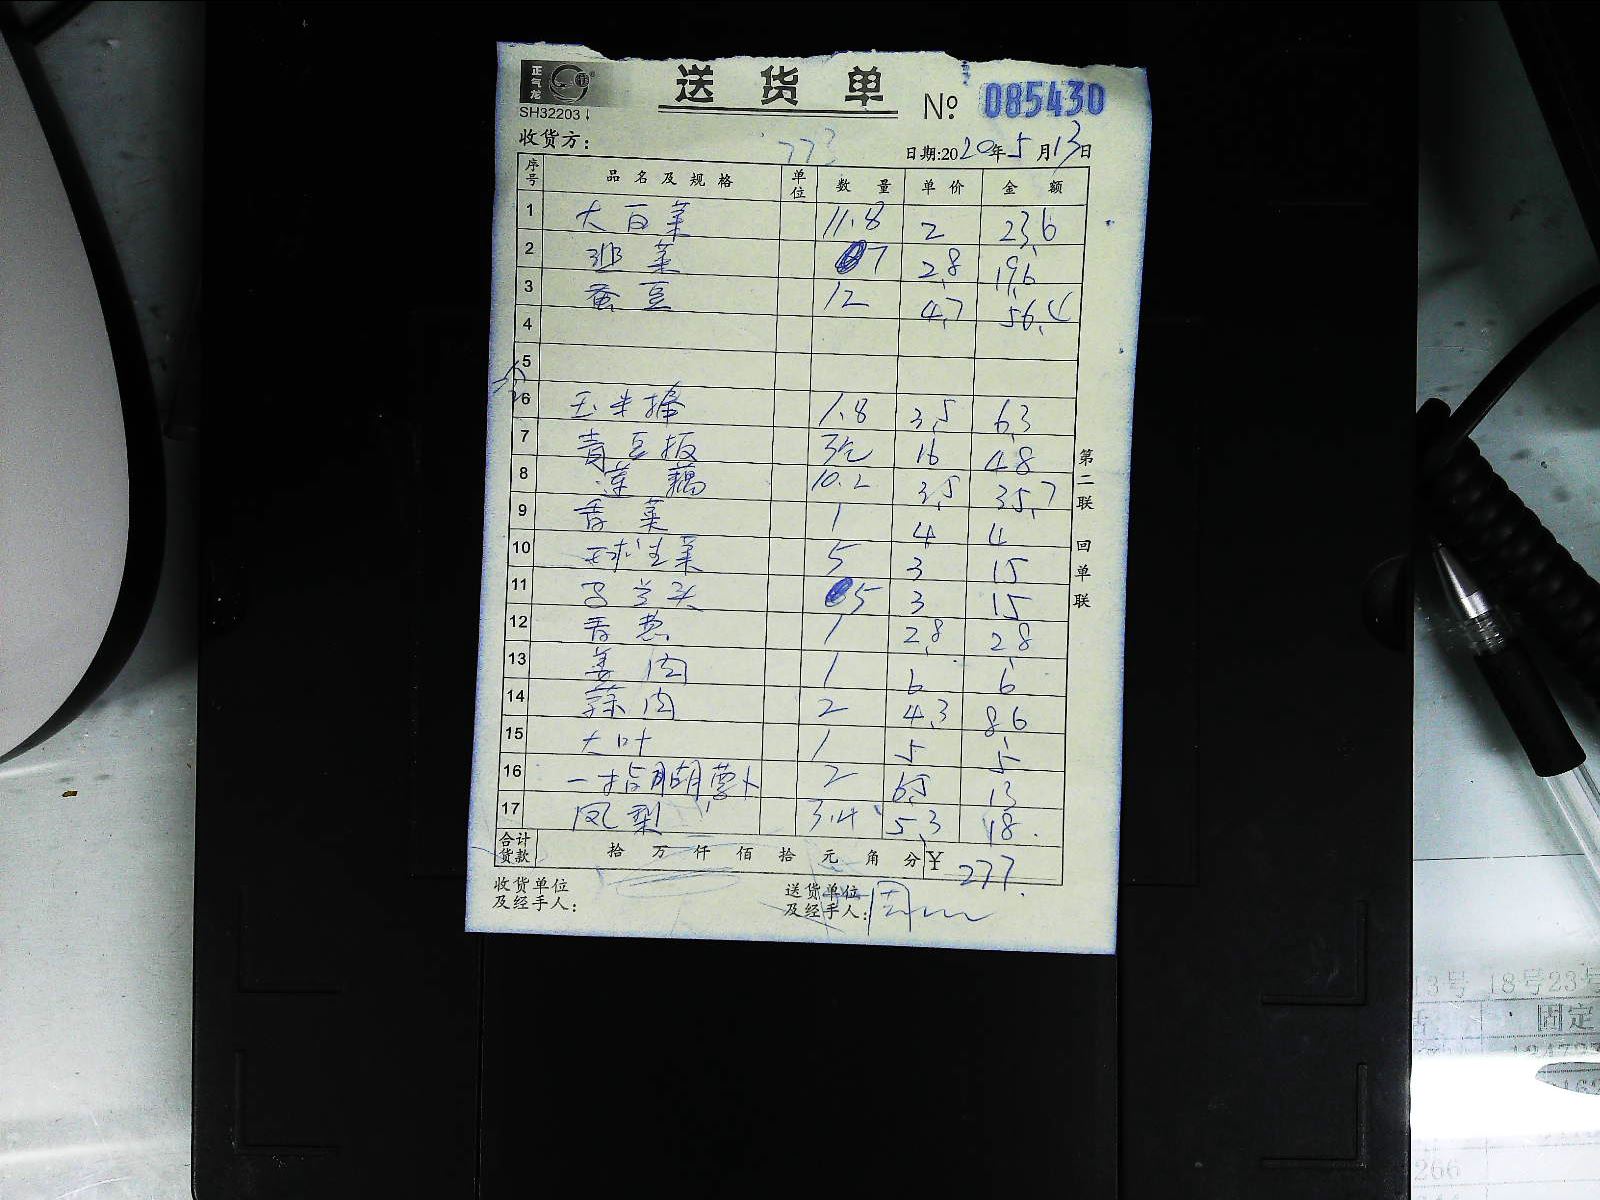 正气龙
送货单
SH32203
№ 085430
收货方： 773
日期:2020年5月13日
序号 品名及规格 单位 数量 单价 金额
1 大百菜 11.8 2 23.6
2 韭菜 7 2.8 19.6
3 蚕豆 12 4.7 56.4
4
5
6 玉米棒 1.8 3.5 6.3
7 青豆板 3 16 48
8 莲藕 10.2 3.5 35.7
9 香菜 1 4 4
10 球生菜 5 3 15
11 马兰头 5 3 15
12 香葱 1 2.8 2.8
13 姜肉 1 6 6
14 蒜肉 2 4.3 8.6
15 大叶 1 5 5
16 一指胡萝卜 2 6.5 13
17 凤梨 3.4 5.3 18.
合计货款 拾 万 仟 佰 拾 元 角 分 ¥ 277.
收货单位及经手人：
送货单位及经手人：周
第二联 回单联
13号 18号23号
固定
266